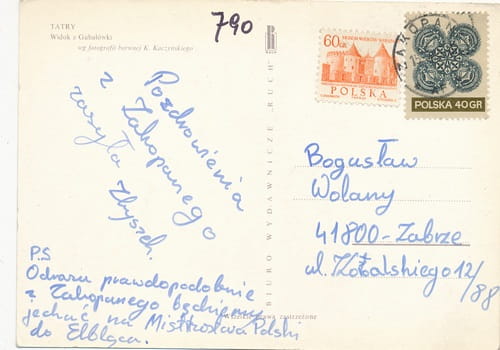 TATRY
Widok z Gubałówki
wg fotografii barwnej K. Kaczyńskiego
790
60 GR
POLSKA
ZAKOPANE
POLSKA 40 GR
Pozdrowienia
z Zakopanego
zasyła
Zbyszek.
P.S
Odrazu prawdopodobnie
z Zakopanego będziemy
jechać na Mistrzostwa Polski
do Elbląga.
BIURO WYDAWNICZE „RUCH”
Wszelkie prawa zastrzeżone
Bogusław
Wolany
41800-Zabrze
ul. 12/88